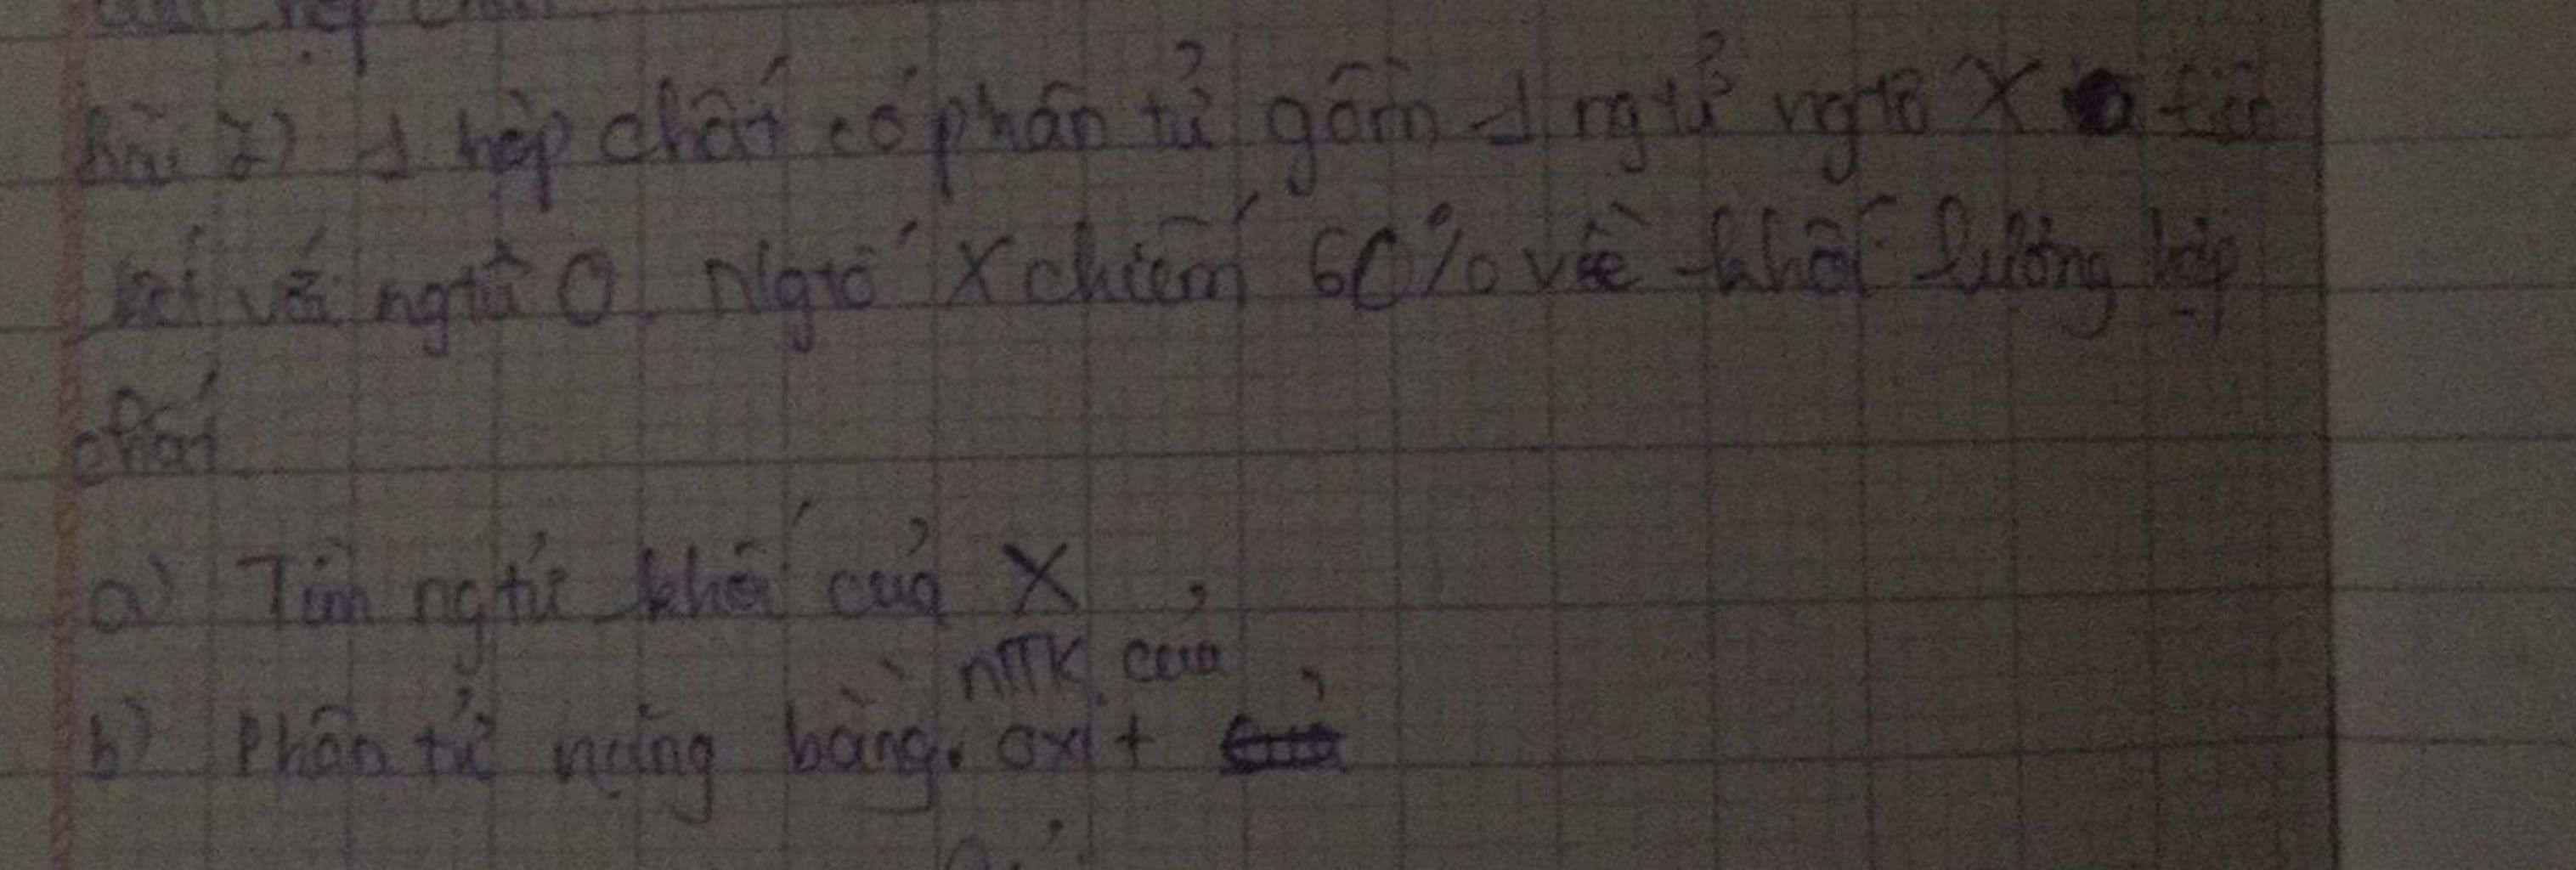 bài 2) 1 hợp chất có phân tử gồm 1 ngtử ngtố X liên
kết với ngtử O. Ngtố X chiếm 60% về khối lượng hợp
chất
a) Tìm ngtử khối của X
NTK của
b) Phân tử nặng bằng oxit